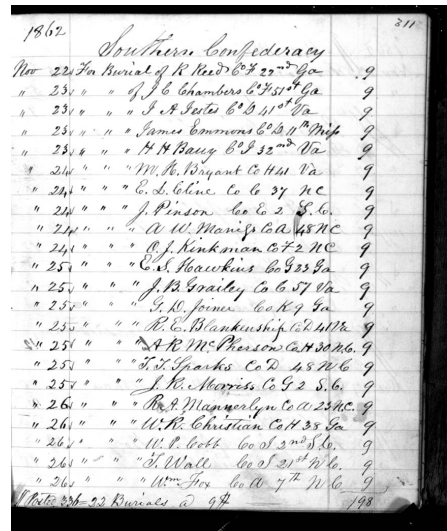 311
1862
Southern Confederacy
Nov 22 For Burial of R Reeds Co F 22nd Ga 9
" 23 " " of J C Chambers Co F 51st Ga 9
" 23 " " " J A Jestes Co D 41st Va 9
" 23 " " " James Emmons Co D 11th Miss 9
" 23 " " " H H Baug Co I 32nd Va 9
" 24 " " " W. H. Bryant Co H 41 Va 9
" 24 " " " E. L. Cline Co C 37 NC 9
" 24 " " " J. Pinson Co E 2 S.C. 9
" 24 " " " A W. Co A 48 NC 9
" 24 " " " O. J. Kinkman Co F 2 NC 9
" 25 " " " E. S. Hawkins Co G 23 Ga 9
" 25 " " " J. B. Grailey Co C 57 Va 9
" 25 " " " G. D. Joiner Co K 9 Ga 9
" 25 " " " R. E. Blankenship Co D 41 Va 9
" 25 " " " A R McPherson Co H 30 N.C. 9
" 25 " " " T. T. Sparks Co D 48 N C 9
" 25 " " " J. R. Morriss Co G 2 S.C. 9
" 26 " " " R. A. Mannerlyn Co A 23 N.C. 9
" 26 " " " W. R. Christian Co H 38 Ga 9
" 26 " " " W. P. Cobb Co I 2nd S.C. 9
" 26 " " " T. Wall Co I 21st N.C. 9
" 26 " " " Wm Fox Co A 7th N C 9
Posted 336 = 22 Burials a 9 $ 198